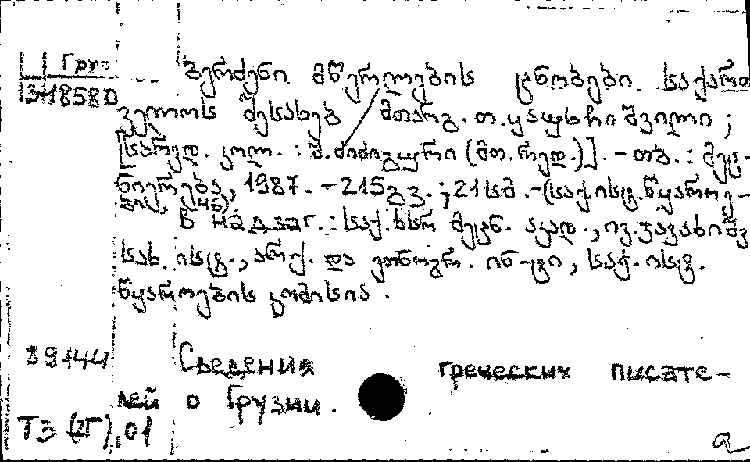 Груз
ბერძენი მწერლების ცნობები საქართ
ველოს შესახებ / მთარგ. თ. ყაუხჩიშვილი ;
[სარედ. კოლ. : შ. ძიძიგური (მთ. რედ.)]. – თბ. : მეც-
ნიერება, 1987. – 215 გვ. ; 21 სმ. – (საქ. ისტ. წყაროე-
В надзаг. : საქ. სსრ მეცნ. აკად., ივ. ჯავახიშვ
სახ. ისტ., არქ. და ეთნოგრ. ინ-ტი, საქ. ისტ.
წყაროების კომისია.
39144 Сведения греческих писате-
лей о Грузии.
Т3(2Г),01